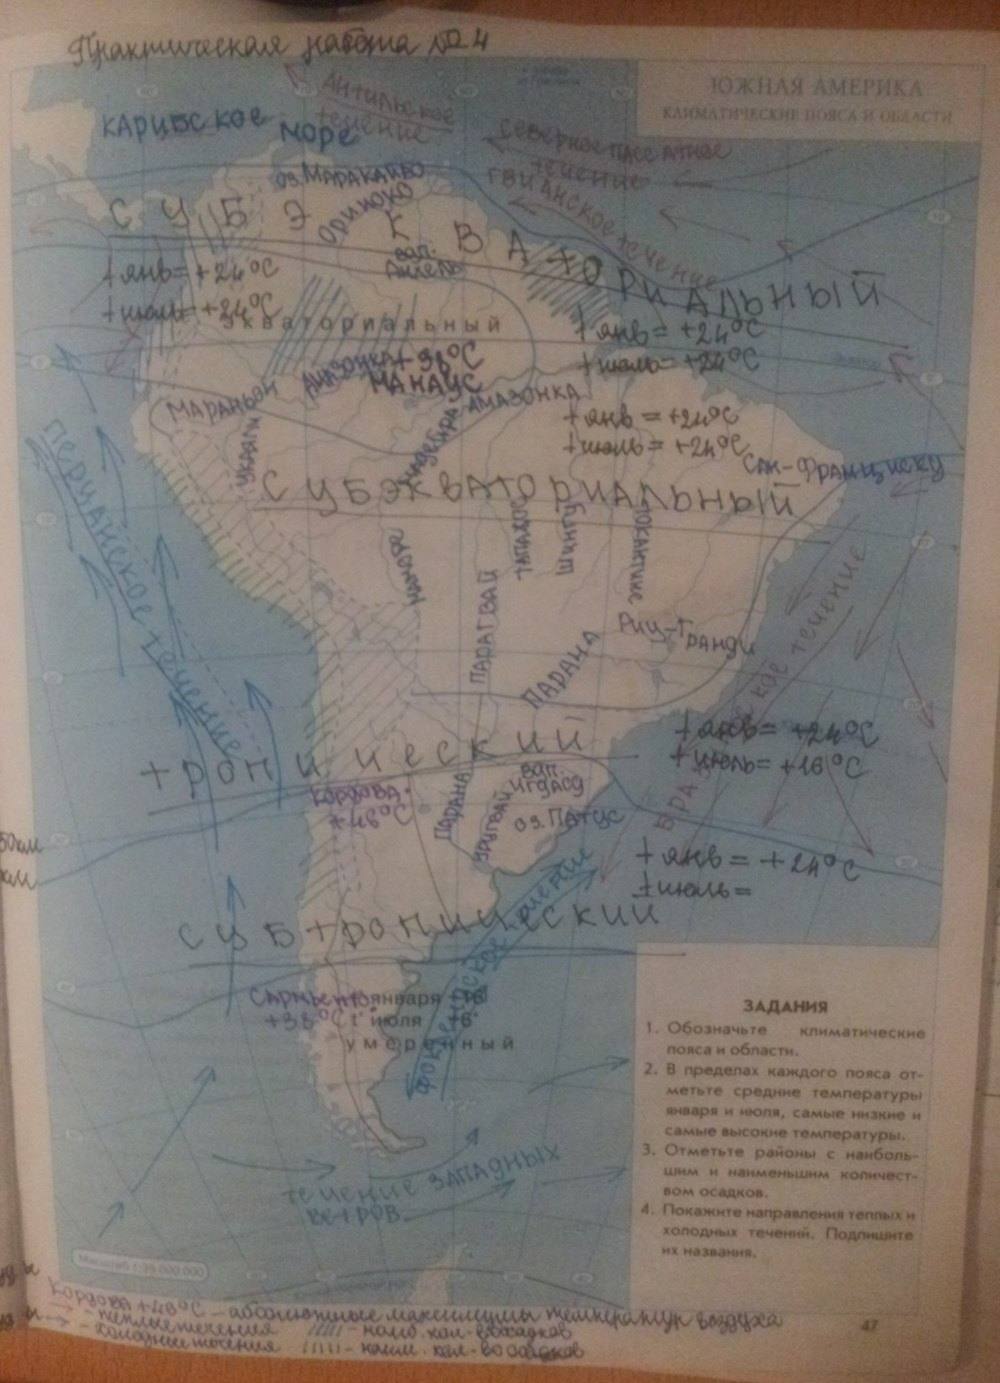 Практическая работа №4
ЮЖНАЯ АМЕРИКА
КЛИМАТИЧЕСКИЕ ПОЯСА И ОБЛАСТИ
АНТИЛЬСКОЕ
течение
КАРИБСКОЕ
МОРЕ
СЕВЕРНОЕ ПАССАТНОЕ
течение
ГВИАНСКОЕ течение
оз. МАРАКАЙБО
ОРИНОКО
СУБЭКВАТОРИАЛЬНЫЙ
вдп.
АНХЕЛЬ
t янв = +24°C
t июль = +24°C
экваториальный
t янв = +24°C
t июль = +24°C
АМАЗОНКА +38°C
МАНАУС
МАРАНЬОН
АМАЗОНКА
УКАЯЛИ
МАДЕЙРА
t янв = +24°C
t июль = +24°C
САН-ФРАНЦИСКУ
СУБЭКВАТОРИАЛЬНЫЙ
ПЕРУАНСКОЕ течение
МАМОРЕ
ТАПАЖОС
ШИНГУ
ПАРАГВАЙ
ПАРАНА
РИУ-ГРАНДИ
t янв = +24°C
t июль = +16°C
тропический
КОРДОВА
+48°C
ПАРАНА
УРУГВАЙ
вдп.
ИГУАСУ
оз. ПАТУС
t янв = +24°C
t июль =
субтропический
САРМЬЕНТО
+33°C
января +16°
t° июля +6°
умеренный
течение ЗАПАДНЫХ
ВЕТРОВ
ЗАДАНИЯ
1. Обозначьте климатические
пояса и области.
2. В пределах каждого пояса от-
метьте средние температуры
января и июля, самые низкие и
самые высокие температуры.
3. Отметьте районы с наиболь-
шим и наименьшим количест-
вом осадков.
4. Покажите направления теплых и
холодных течений. Подпишите
их названия.
Масштаб 1:35 000 000
Кордова +48°C - абсолютные максимумы температур воздуха
→ - теплые течения //// - наиб. кол-во осадков
→ - холодные течения |||| - наим. кол-во осадков
47